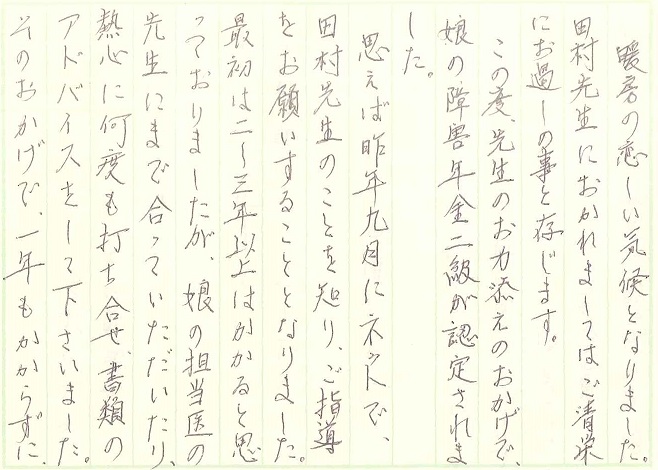 暖房の恋しい気候となりました。
田村先生におかれましてはご清栄
にお過しの事と存じます。
この度、先生のお力添えのおかげで、
娘の障害年金二級が認定されま
した。
思えば昨年九月にネットで、
田村先生のことを知り、ご指導
をお願いすることとなりました。
最初は二〜三年以上はかかると思
っておりましたが、娘の担当医の
先生にまで合っていただいたり、
熱心に何度も打ち合せ、書類の
アドバイスをして下さいました。
そのおかげで、一年もかからずに、